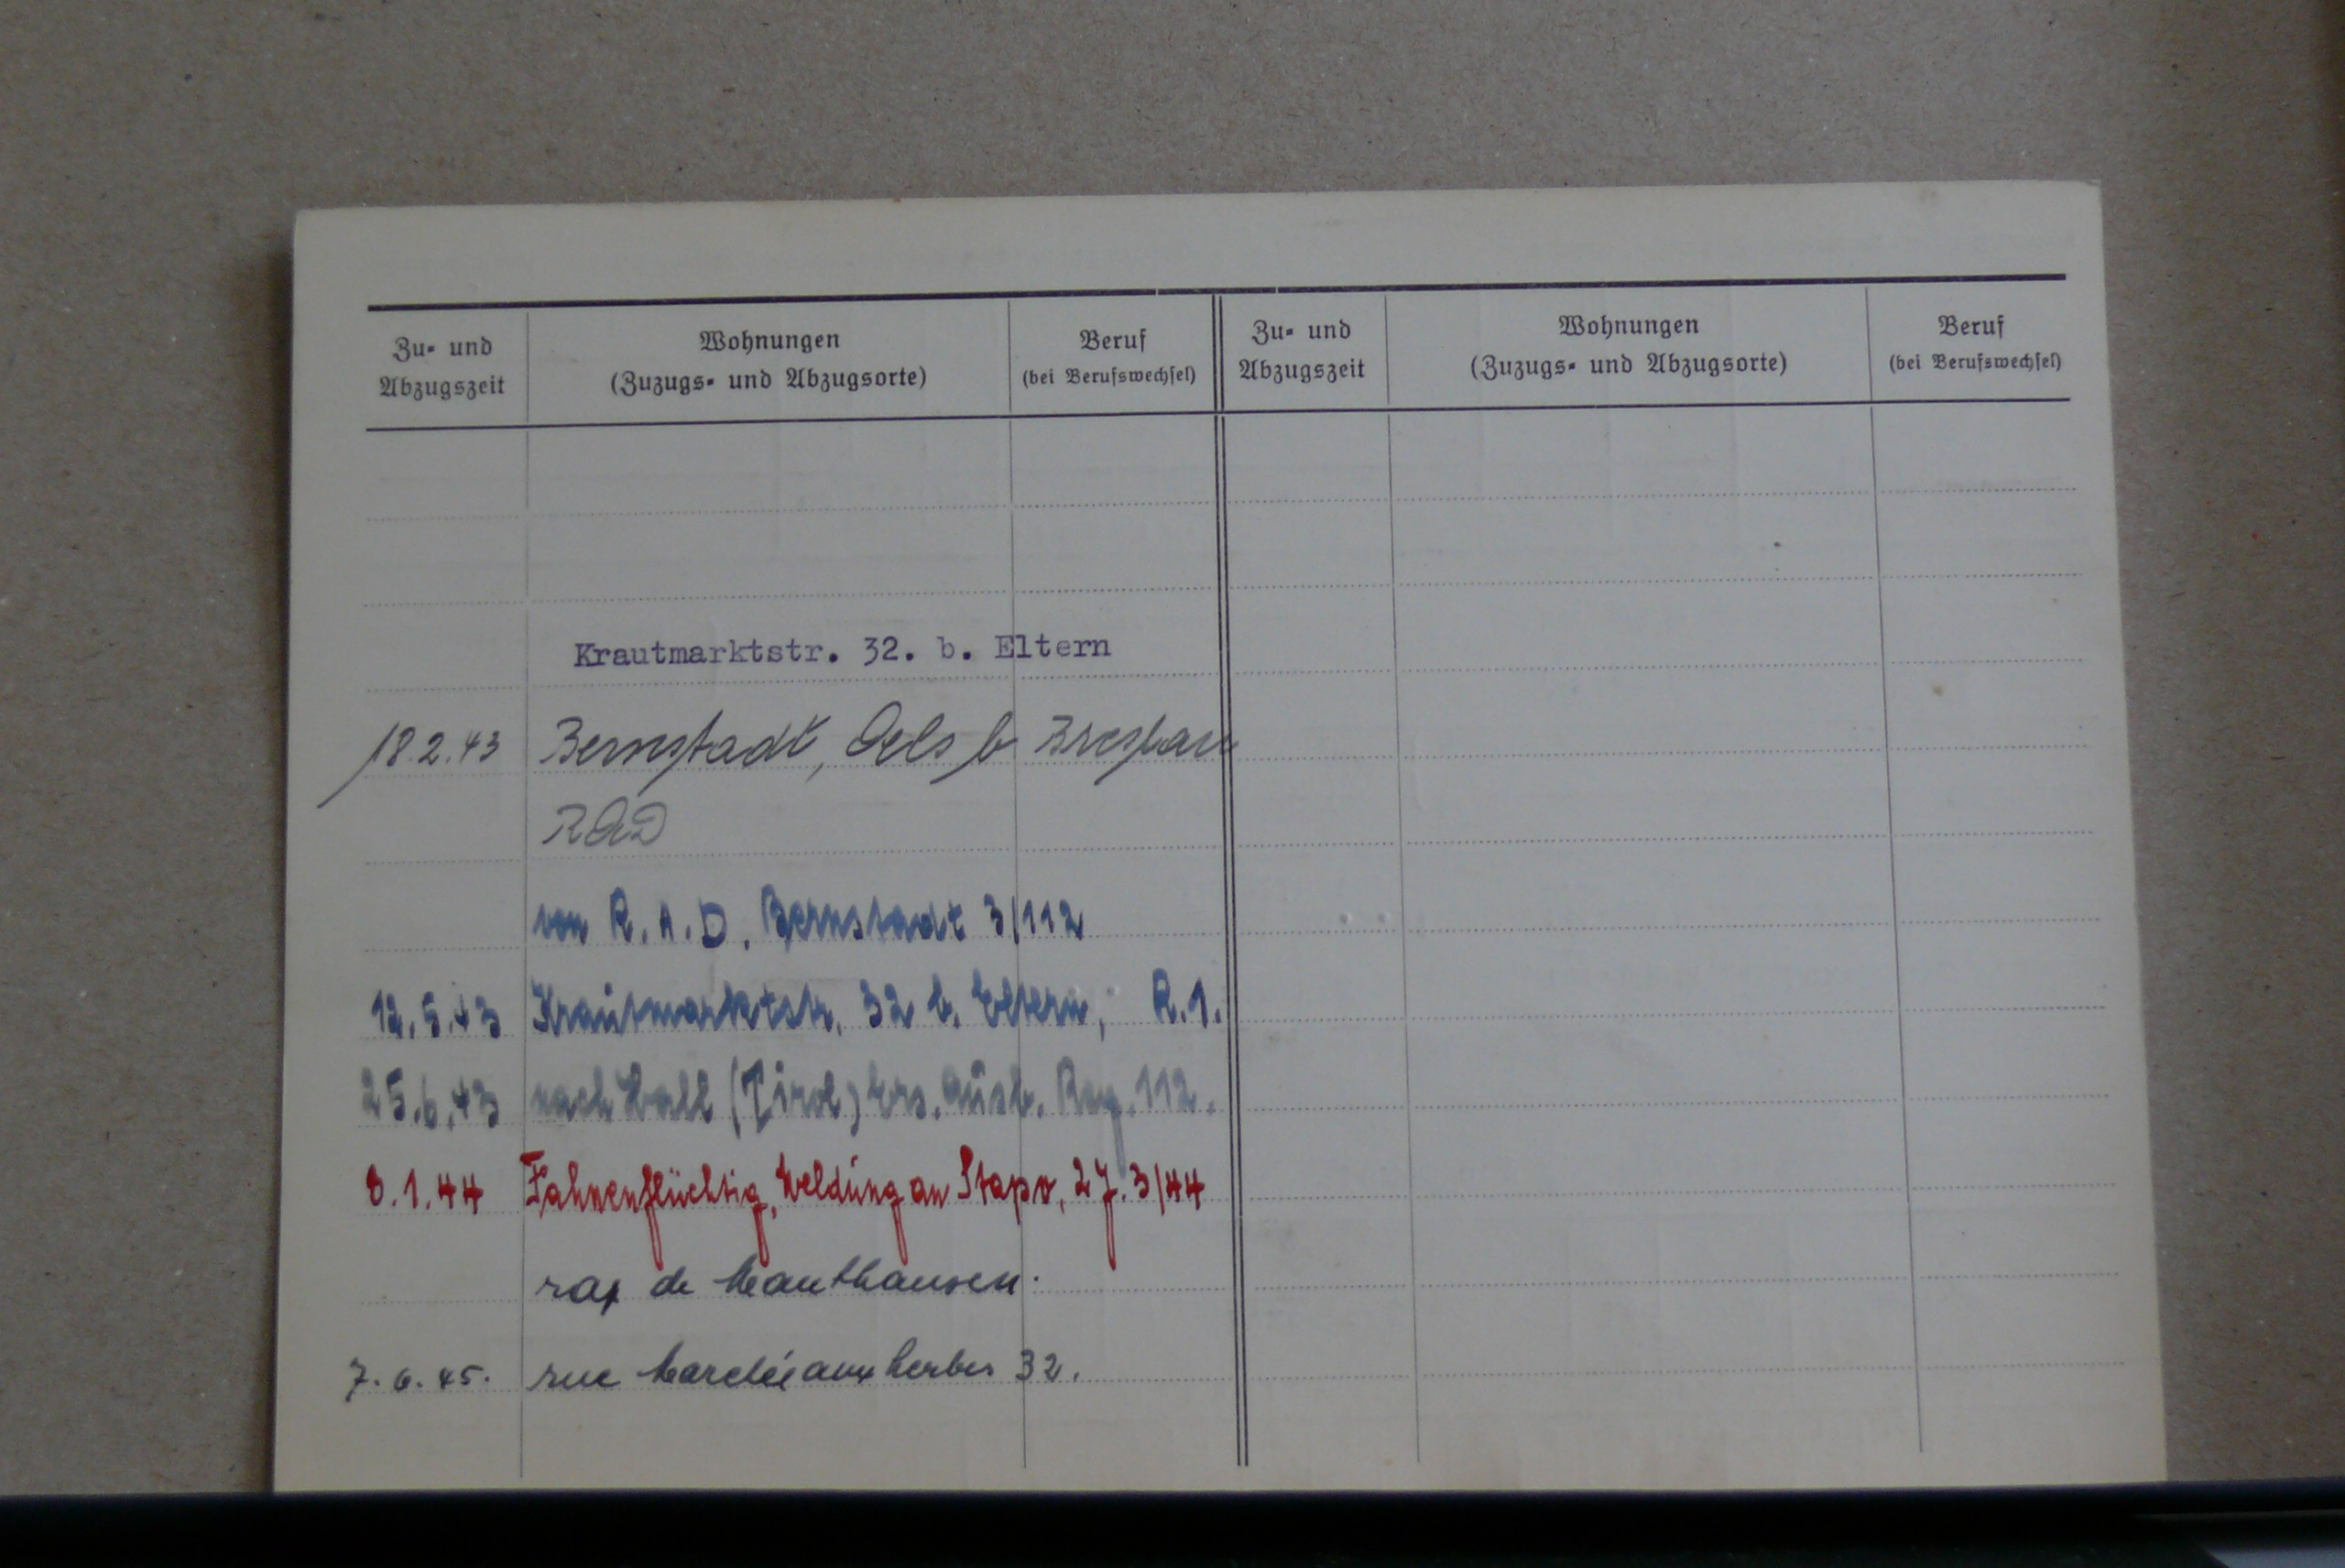 Zu- und Abzugszeit
Wohnungen
(Zuzugs- und Abzugsorte)
Beruf
(bei Berufswechsel)
Zu- und Abzugszeit
Wohnungen
(Zuzugs- und Abzugsorte)
Beruf
(bei Berufswechsel)
Krautmarktstr. 32. b. Eltern
18.2.43 Bernstadt, Oels b Breslau
RAD
von R.A.D. Bernstadt 3/112
12.5.43 Krautmarktstr. 32 b. Eltern, R.1.
25.6.43 nach Hall (Tirol) Ers. Ausb. Reg. 112.
8.1.44 Fahnenflüchtig, Meldung an Stapo, 2J. 3/44
rap de Mauthausen.
7.6.45. rue Marché aux herbes 32.